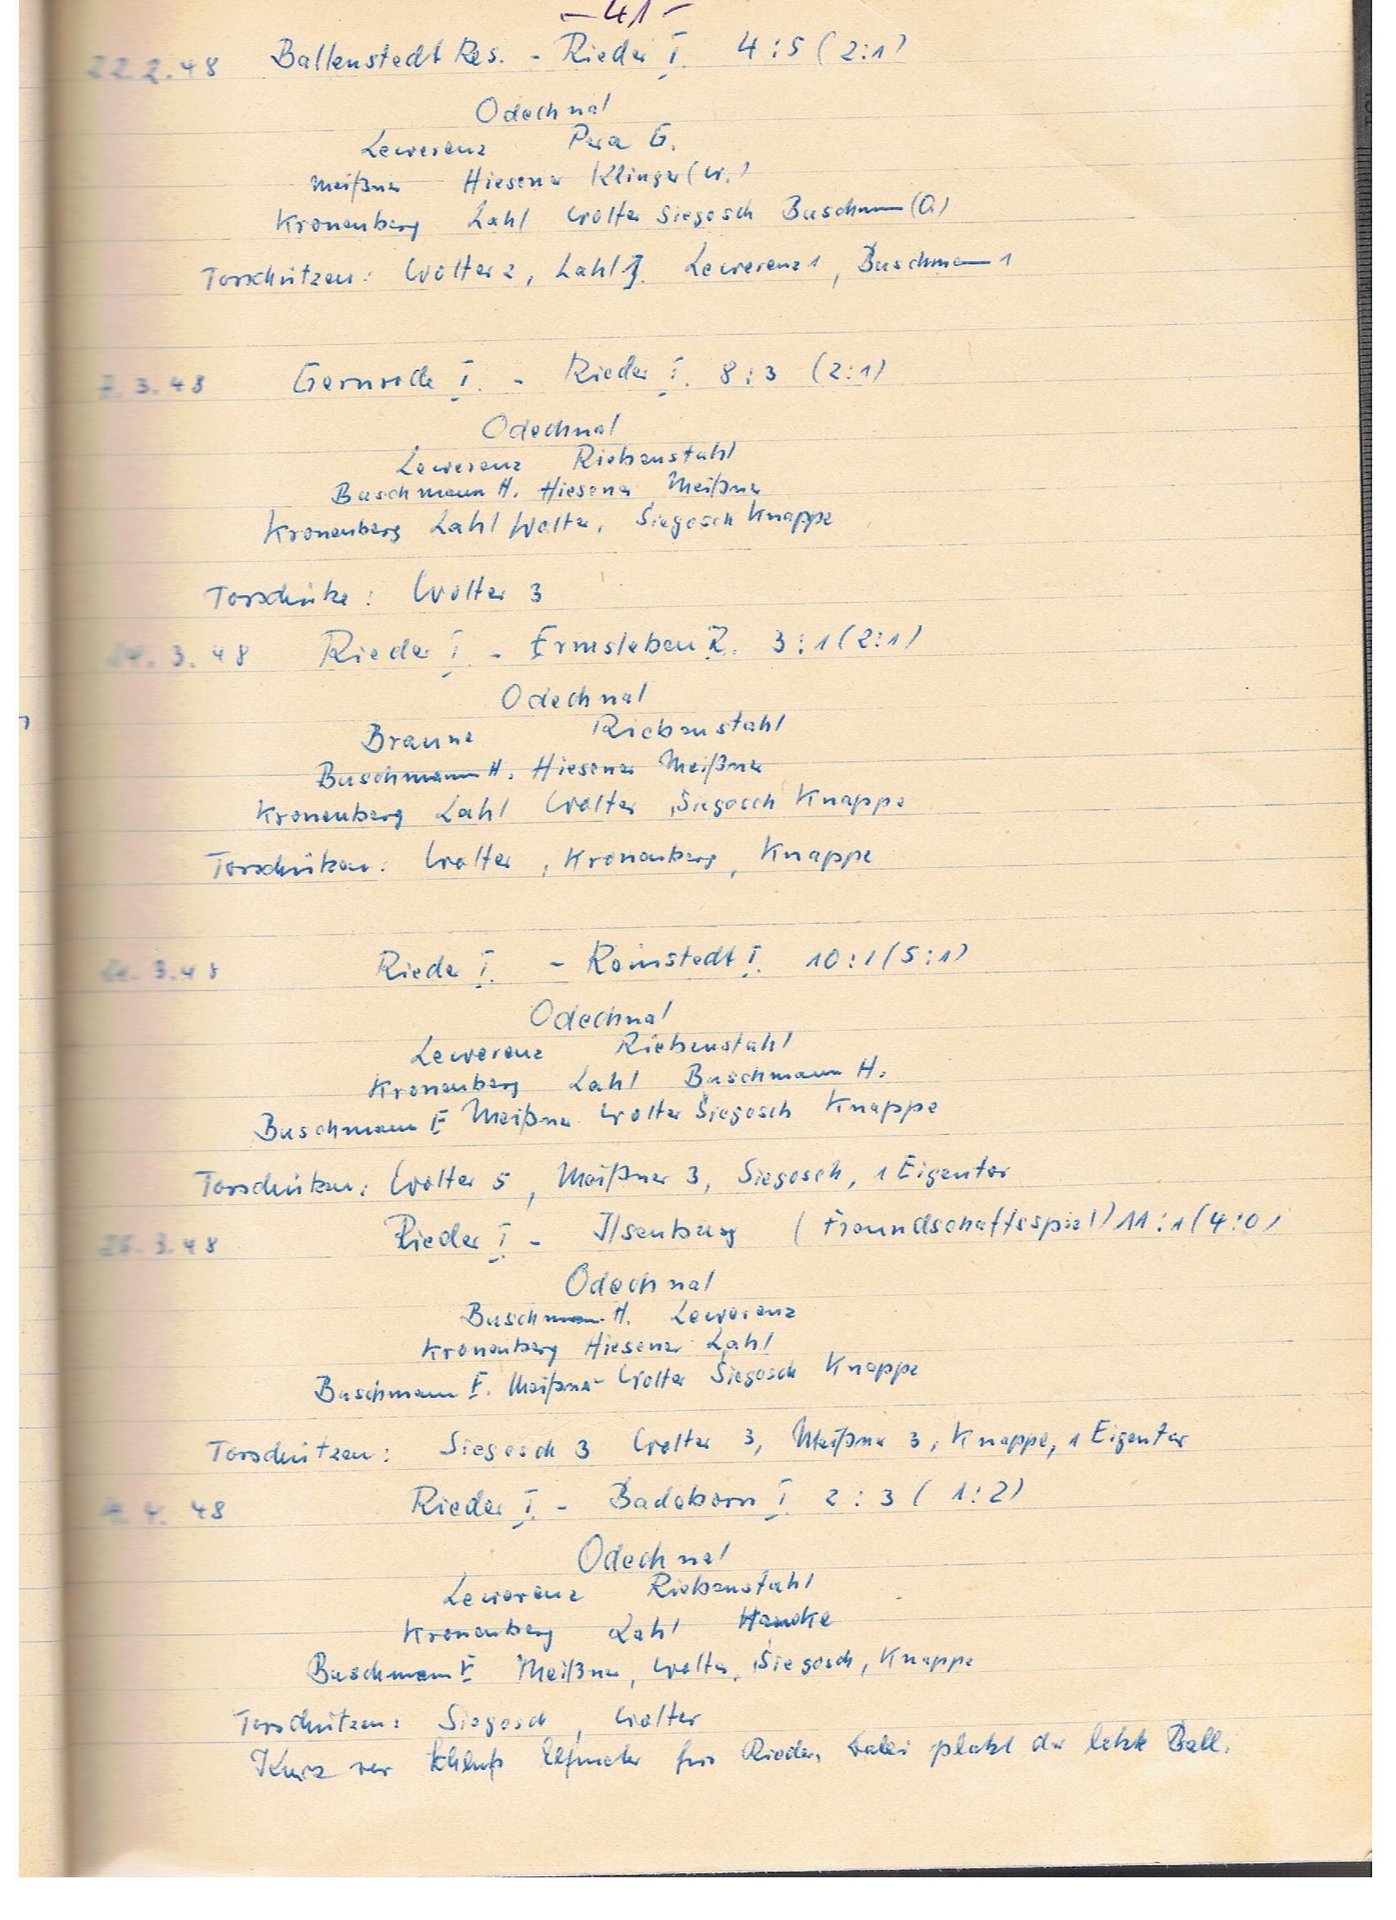 - 41 -
22.2.48 Ballenstedt Res. - Rieder I. 4:5 (2:1)
Odechnal
Lewerenz Para G.
Meißner Hiesener Klinger (W.)
Kronenberg Lahl Wolter Siegosch Buschmann (O)
Torschützen: Wolter 2, Lahl 1. Lewerenz 1, Buschmann 1
7.3.48 Gernrode I. - Rieder I. 8:3 (2:1)
Odechnal
Lewerenz Riebenstahl
Buschmann H. Hiesener Meißner
Kronenberg Lahl Wolter, Siegosch Knappe
Torschütze: Wolter 3
14.3.48 Rieder I. - Ermsleben 2. 3:1 (2:1)
Odechnal
Braune Riebenstahl
Buschmann H. Hiesener Meißner
Kronenberg Lahl Wolter Siegosch Knappe
Torschützen: Wolter, Kronenberg, Knappe
21.3.48 Rieder I. - Reinstedt I. 10:1 (5:1)
Odechnal
Lewerenz Riebenstahl
Kronenberg Lahl Buschmann H.
Buschmann E Meißner Wolter Siegosch Knappe
Torschützen: Wolter 5, Meißner 3, Siegosch, 1 Eigentor
3.48 Rieder I. - Ilsenburg (Freundschaftsspiel) 11:1 (4:0)
Odechnal
Buschmann H. Lewerenz
Kronenberg Hiesener Lahl
Buschmann E. Meißner Wolter Siegosch Knappe
Torschützen: Siegosch 3 Wolter 3, Meißner 3, Knappe, 1 Eigentor
4.48 Rieder I. - Badeborn I. 2:3 (1:2)
Odechnal
Lewerenz Riebenstahl
Kronenberg Lahl Hancke
Buschmann E Meißner, Wolter, Siegosch, Knappe
Torschützen: Siegosch, Wolter
Kurz vor Schluß Elfmeter für Rieder, dabei platzt der letzte Ball.